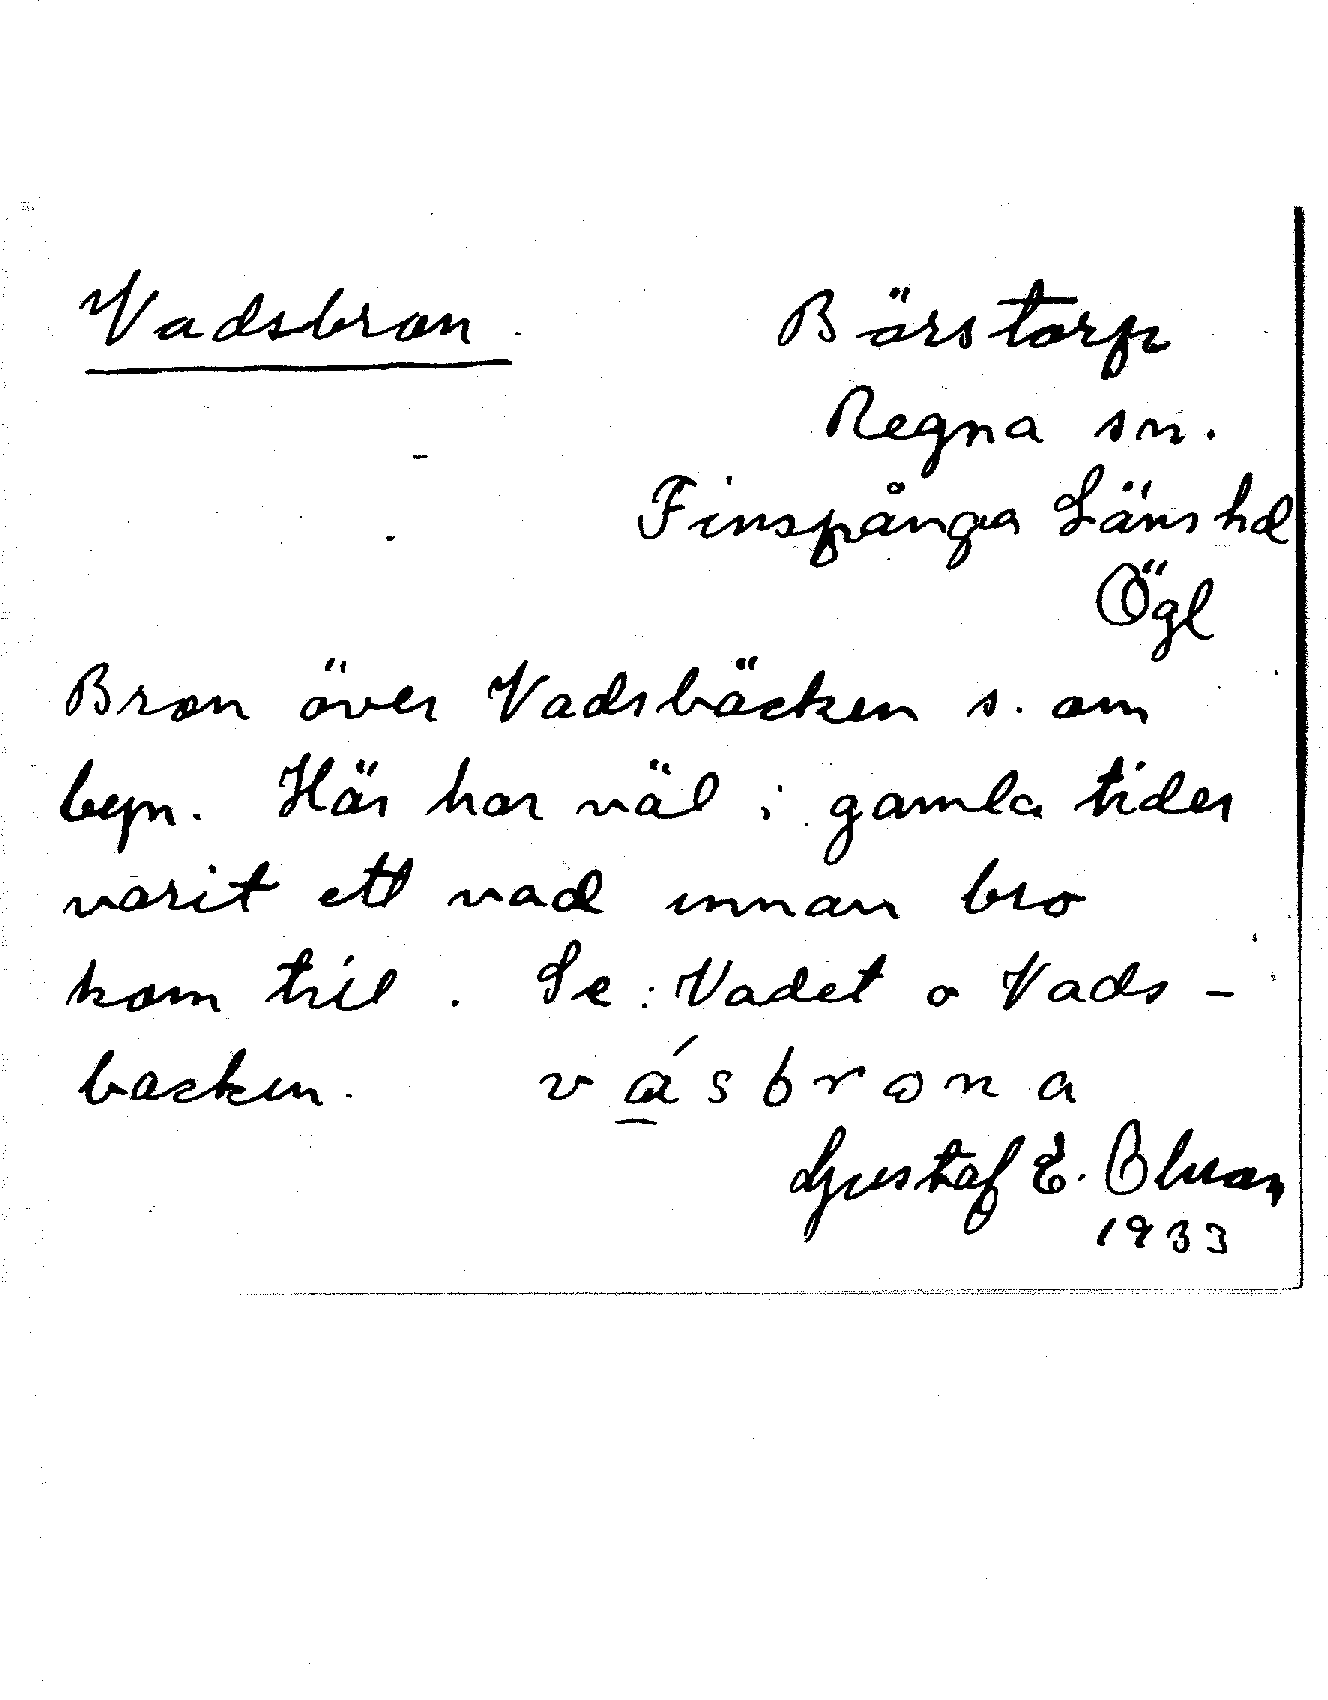 Vadsbron.
Börstorp
Regna sn.
Finspånga Läns hd
Ögl
Bron över Vadsbäcken s. om
byn. Här har väl i gamla tider
varit ett vad innan bro
kom till. Se: Vadet o Vads-
backen. vásbrona
Gustaf E.
1933